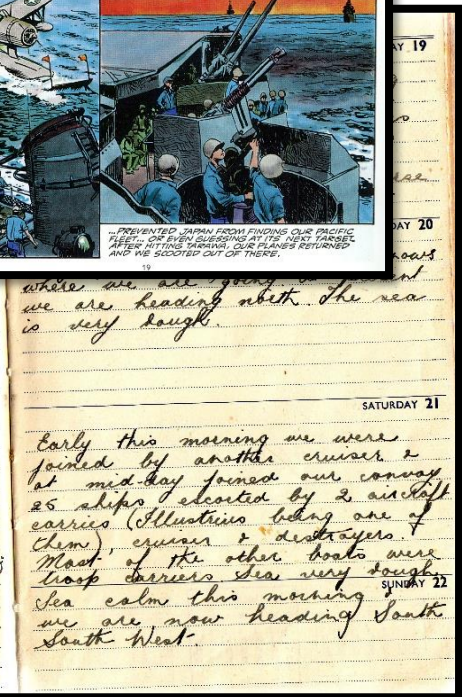 ...PREVENTED JAPAN FROM FINDING OUR PACIFIC
FLEET... OR EVEN GUESSING AT ITS NEXT TARGET.
AFTER HITTING TARAWA, OUR PLANES RETURNED
AND WE SCOOTED OUT OF THERE.
19
AY 19
DAY 20
where we are going
we are heading north. The sea
is very rough.
SATURDAY 21
Early this morning we were
joined by another cruiser &
at mid-day joined our convoy
25 ships escorted by 2 aircraft
carries (Illustrius being one of
them), cruiser & destroyers.
Most of the other boats were
troop carriers Sea very rough
SUNDAY 22
Sea calm this morning
we are now heading South
South West.